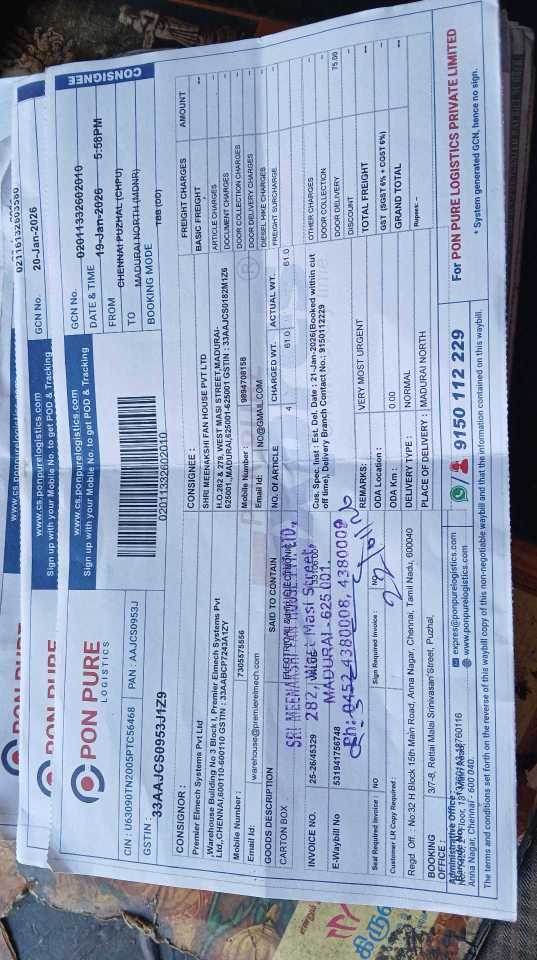 www.cs.ponpurelogistics.com
GCN No.
20-Jan-2026
PON PURE
LOGISTICS
www.cs.ponpurelogistics.com
Sign up with your Mobile No. to get POD & Tracking
CONSIGNEE
CIN : U63090TN2005PTC56468 PAN : AAJCS0953J
GSTIN : 33AAJCS0953J1Z9
02011332602010
GCN No. 02011332602010
DATE & TIME 19-Jan-2026 5:58PM
FROM CHENNAI PUZHAL (CHPU)
TO MADURAI NORTH (MDNR)
BOOKING MODE TBB (DD)
CONSIGNOR :
Premier Elmech Systems Pvt Ltd
,Warehouse Building No 3 Block I, Premier Elmech Systems Pvt
Ltd,,CHENNAI,600110-600110 GSTIN : 33AABCP7243A1ZY
Mobile Number : 7305575556
Email Id: warehouse@premierelmech.com
CONSIGNEE :
SHRI MEENAKSHI FAN HOUSE PVT LTD
H.O.282 & 279, WEST MASI STREET,MADURAI-
625001,,MADURAI,625001-625001 GSTIN : 33AAJCS0182M1Z6
Mobile Number : 9894708158
Email Id: NO@GMAIL.COM
GOODS DESCRIPTION SAID TO CONTAIN NO. OF ARTICLE CHARGED WT. ACTUAL WT.
CARTON BOX 4 61.0 61.0
INVOICE NO. 25-26/45329 VALUE
E-Waybill No 531941756748
SRI MEENAKSHI FAN HOUSE PVT. LTD.,
282, West Masi Street,
MADURAI - 625 001.
Ph: 0452-4380008, 4380009
Cus. Spec. Inst : Est. Del. Date : 21-Jan-2026(Booked within cut
off time), Delivery Branch Contact No.: 9150112229
Seal Required Invoice : NO Sign Required Invoice : NO
Customer LR Copy Required :
REMARKS: VERY MOST URGENT
ODA Location :
ODA Km : 0.00
DELIVERY TYPE : NORMAL
PLACE OF DELIVERY : MADURAI NORTH
FREIGHT CHARGES AMOUNT
BASIC FREIGHT --
ARTICLE CHARGES --
DOCUMENT CHARGES --
DOOR COLLECTION CHARGES --
DOOR DELIVERY CHARGES --
DIESEL HIKE CHARGES --
FREIGHT SURCHARGE --
OTHER CHARGES --
DOOR COLLECTION --
DOOR DELIVERY 75.00
DISCOUNT --
TOTAL FREIGHT --
GST (SGST 6% + CGST 6%) --
GRAND TOTAL --
Rupees: --
Regd. Off : No:32 H Block 15th Main Road, Anna Nagar, Chennai, Tamil Nadu, 600040
BOOKING OFFICE : 3/7-8, Rettai Malai Srinivasan Street, Puzhal,
Administrative Office :
Anna Nagar, Chennai - 600 040.
expres@ponpurelogistics.com
www.ponpurelogistics.com
9150 112 229
For PON PURE LOGISTICS PRIVATE LIMITED
The terms and conditions set forth on the reverse of this waybill copy of this non-negotiable waybill and that the information contained on this waybill.
* System generated GCN, hence no sign.